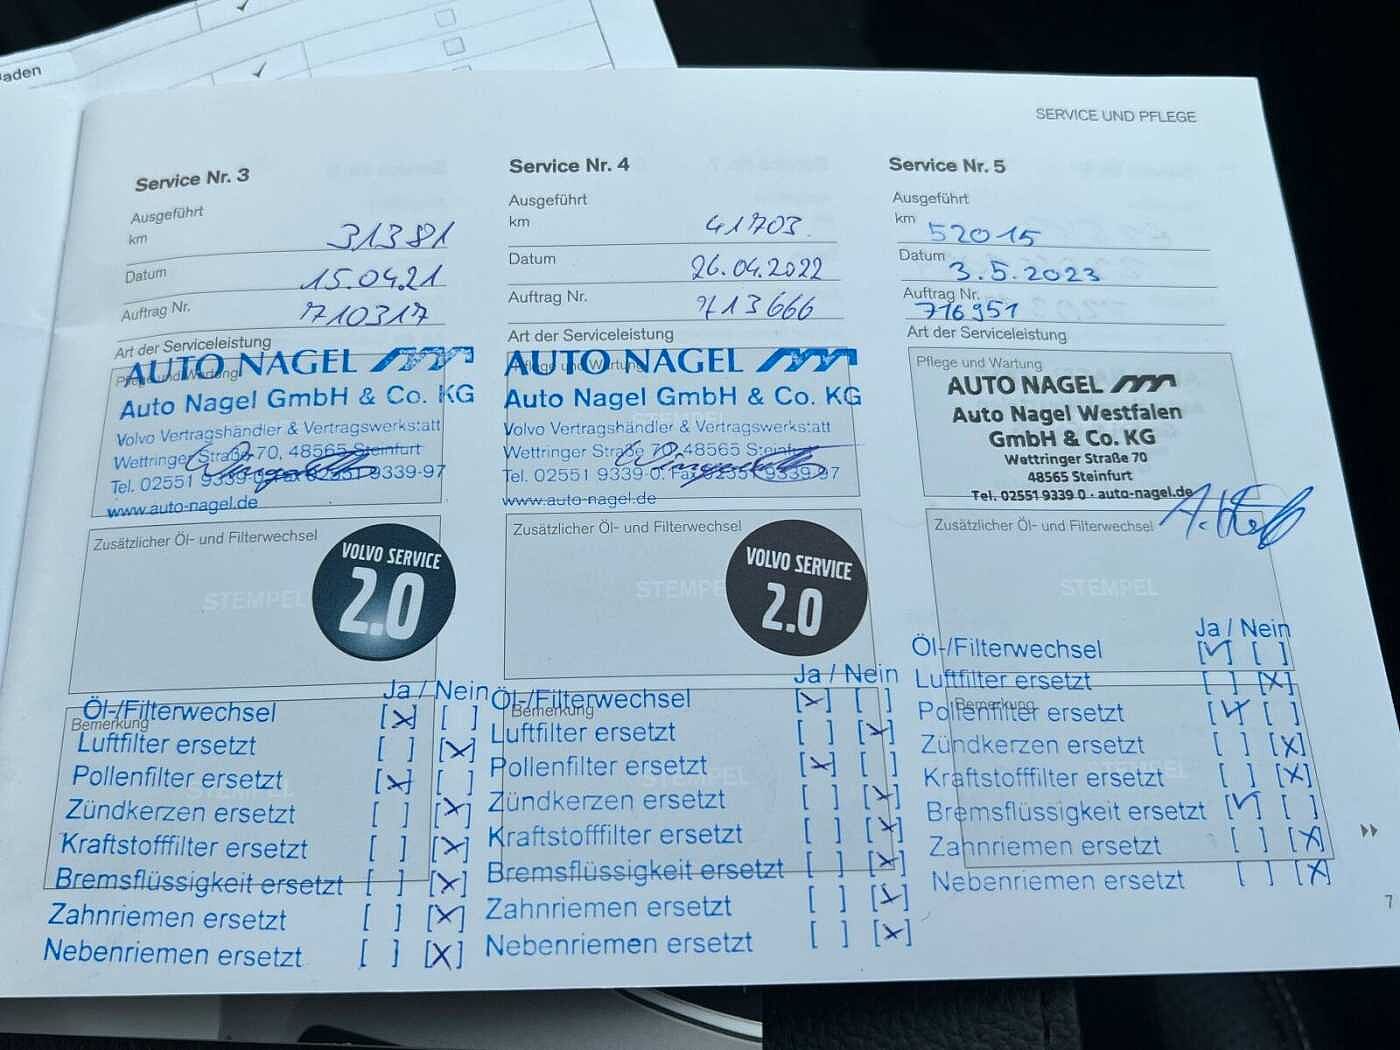 aden
SERVICE UND PFLEGE
Service Nr. 3
Ausgeführt
km 31381
Datum 15.04.21
Auftrag Nr. 710317
Art der Serviceleistung
Pflege und Wartung
AUTO NAGEL
Auto Nagel GmbH & Co. KG
Volvo Vertragshändler & Vertragswerkstatt
Wettringer Straße 70, 48565 Steinfurt
Tel. 02551 9339-0 · Fax 02551 9339-97
www.auto-nagel.de
Zusätzlicher Öl- und Filterwechsel
STEMPEL
VOLVO SERVICE
2.0
Ja / Nein
Öl-/Filterwechsel [x] [ ]
Bemerkung
Luftfilter ersetzt [ ] [x]
Pollenfilter ersetzt [x] [ ]
STEMPEL
Zündkerzen ersetzt [ ] [x]
Kraftstofffilter ersetzt [ ] [x]
Bremsflüssigkeit ersetzt [ ] [x]
Zahnriemen ersetzt [ ] [x]
Nebenriemen ersetzt [ ] [x]
Service Nr. 4
Ausgeführt
km 41703
Datum 26.04.2022
Auftrag Nr. 713666
Art der Serviceleistung
Pflege und Wartung
AUTO NAGEL
Auto Nagel GmbH & Co. KG
STEMPEL
Volvo Vertragshändler & Vertragswerkstatt
Wettringer Straße 70, 48565 Steinfurt
Tel. 02551 9339-0 · Fax 02551 9339-97
www.auto-nagel.de
Zusätzlicher Öl- und Filterwechsel
STEMPEL
VOLVO SERVICE
2.0
Ja / Nein
Öl-/Filterwechsel [x] [ ]
Bemerkung
Luftfilter ersetzt [ ] [x]
Pollenfilter ersetzt [x] [ ]
STEMPEL
Zündkerzen ersetzt [ ] [x]
Kraftstofffilter ersetzt [ ] [x]
Bremsflüssigkeit ersetzt [ ] [x]
Zahnriemen ersetzt [ ] [x]
Nebenriemen ersetzt [ ] [x]
Service Nr. 5
Ausgeführt
km 52015
Datum 3.5.2023
Auftrag Nr. 716951
Art der Serviceleistung
Pflege und Wartung
AUTO NAGEL
Auto Nagel Westfalen
GmbH & Co. KG
Wettringer Straße 70
48565 Steinfurt
Tel. 02551 9339 0 · auto-nagel.de
Zusätzlicher Öl- und Filterwechsel
STEMPEL
Ja / Nein
Öl-/Filterwechsel [✓] [ ]
Luftfilter ersetzt [ ] [x]
Bemerkung
Pollenfilter ersetzt [✓] [ ]
Zündkerzen ersetzt [ ] [x]
STEMPEL
Kraftstofffilter ersetzt [ ] [x]
Bremsflüssigkeit ersetzt [✓] [ ]
Zahnriemen ersetzt [ ] [x]
Nebenriemen ersetzt [ ] [x]
7